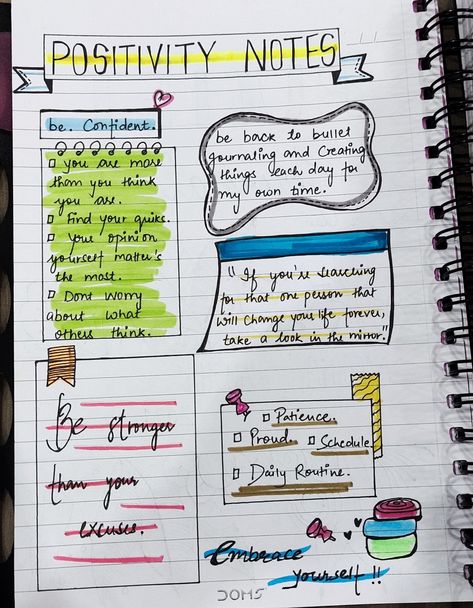 POSITIVITY NOTES
be. Confident.
□ You are more
than you think
you are.
□ Find your quiks.
□ Your opinion
yourself matter's
the most.
□ Dont worry
about what
others think.
be back to bullet
journaling and Creating
things each day for
my own time.
"If you're searching
for that one person that
will change you life forever,
take a look in the mirror."
Be stronger
than your
excuses.
□ Patience.
□ Proud. □ Schedule
□ Daily Routine.
Embrace
yourself !!
DOMS